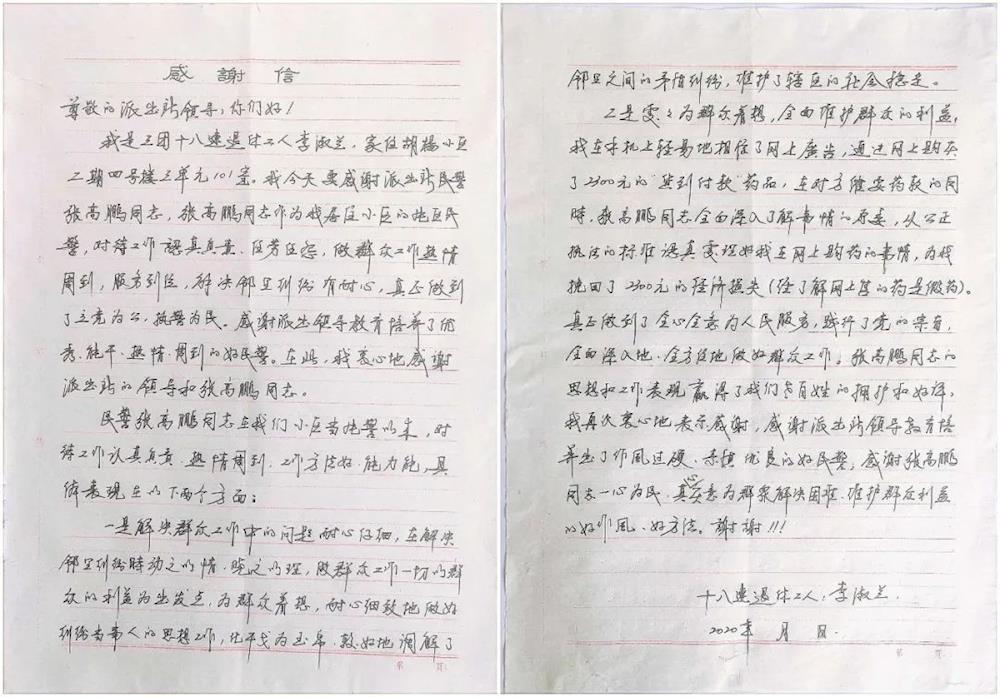 感謝信
尊敬的派出所领导:你们好!
我是三团十八连退休工人李淑兰,家住胡杨小区
二期四号楼三单元101室。我今天要感谢派出所民警
张高鹏同志,张高鹏同志作为我居住小区的地区民
警,对待工作認真負责、任劳任怨,做群众工作热情
周到,服务到位,解决邻里纠纷有耐心,真正做到
了立党为公,执警为民。感谢派出领导教育培养了优
秀、能干、热情、周到的好民警。在此,我衷心地感謝
派出所的领导和张高鹏同志。
民警张高鹏同志在我们小区当地警以来,对
待工作认真負责、热情周到、工作方法好、能力能,具
体表现在以下两个方面:
一是解决群众工作中的问题耐心仔细,在解决
邻里纠纷時动之以情、晓之以理,做群众工作一切以群
众的利益为出发点,为群众着想,耐心细致地做好
纠纷当事人的思想工作,化干戈为玉帛,較好地调解了
邻里之间的矛盾纠纷,维护了辖区的社会稳定。
二是處々为群众着想,全面维护群众的利益,
我在手机上轻易地相信了网上廣告,通过网上购买
了2300元的“货到付款”药品,在对方催要药款的同
時,张高鹏同志全面深入了解事情的原委,从公正
执法的标准認真處理好我在网上购药的事情,为我
挽回了2300元的经济损失(经了解网上隆的药是假药)。
真正做到了全心全意为人民服务,践行了党的宗旨,
全面深入地、全方位地做好群众工作。张高鹏同志的
思想和工作表现赢得了我们老百姓的拥护和好评,
我再次衷心地表示感谢,感谢派出所领导教育培
养出了作风过硬、素慎优良的好民警,感谢张高鹏
同志一心为民、真心实意为群衆解决困难、维护群众利益
的好作風、好方法。謝謝!!!
十八連退休工人:李淑兰.
2020年 月 日.
第 页
第 页